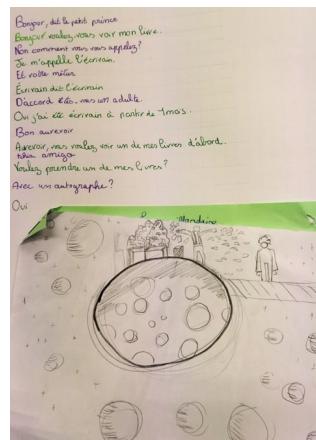 Bonjour, dit le petit prince
Bonjour voulez-vous voir mon livre.
Non comment vous vous appelez?
Je m'appelle l'écrivain.
Et votre métier
Écrivain dit l'écrivain
D'accord êtes-vous un adulte.
Oui j'ai été écrivain à partir de 1 mois.
Bon aurevoir
Aurevoir, vous voulez voir un de mes livres d'abord.
amigo
Voulez prendre un de mes livres?
Avec un autographe?
Oui